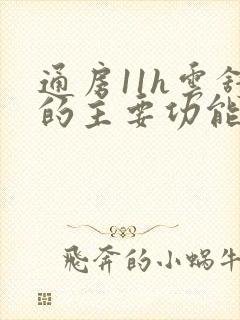 通房11h雲舒
的主要功能
飛奔的小蝸牛